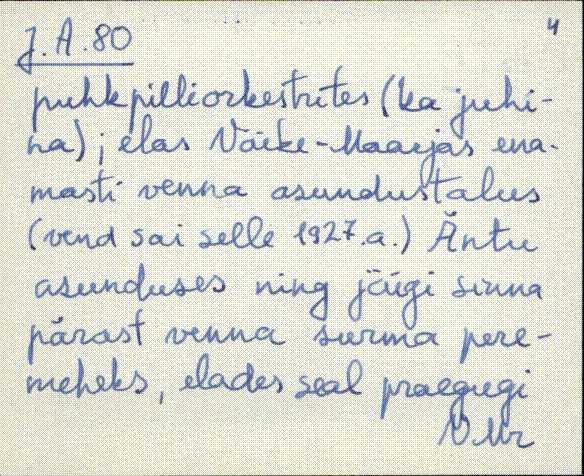 J. A. 80
4
puhkpilliorkestrites (ka juhi-
na); elas Väike-Maarjas ena-
masti venna asundustalus
(vend sai selle 1927.a.) Äntu
asunduses ning jäigi sinna
pärast venna surma pere-
meheks, elades seal praegugi